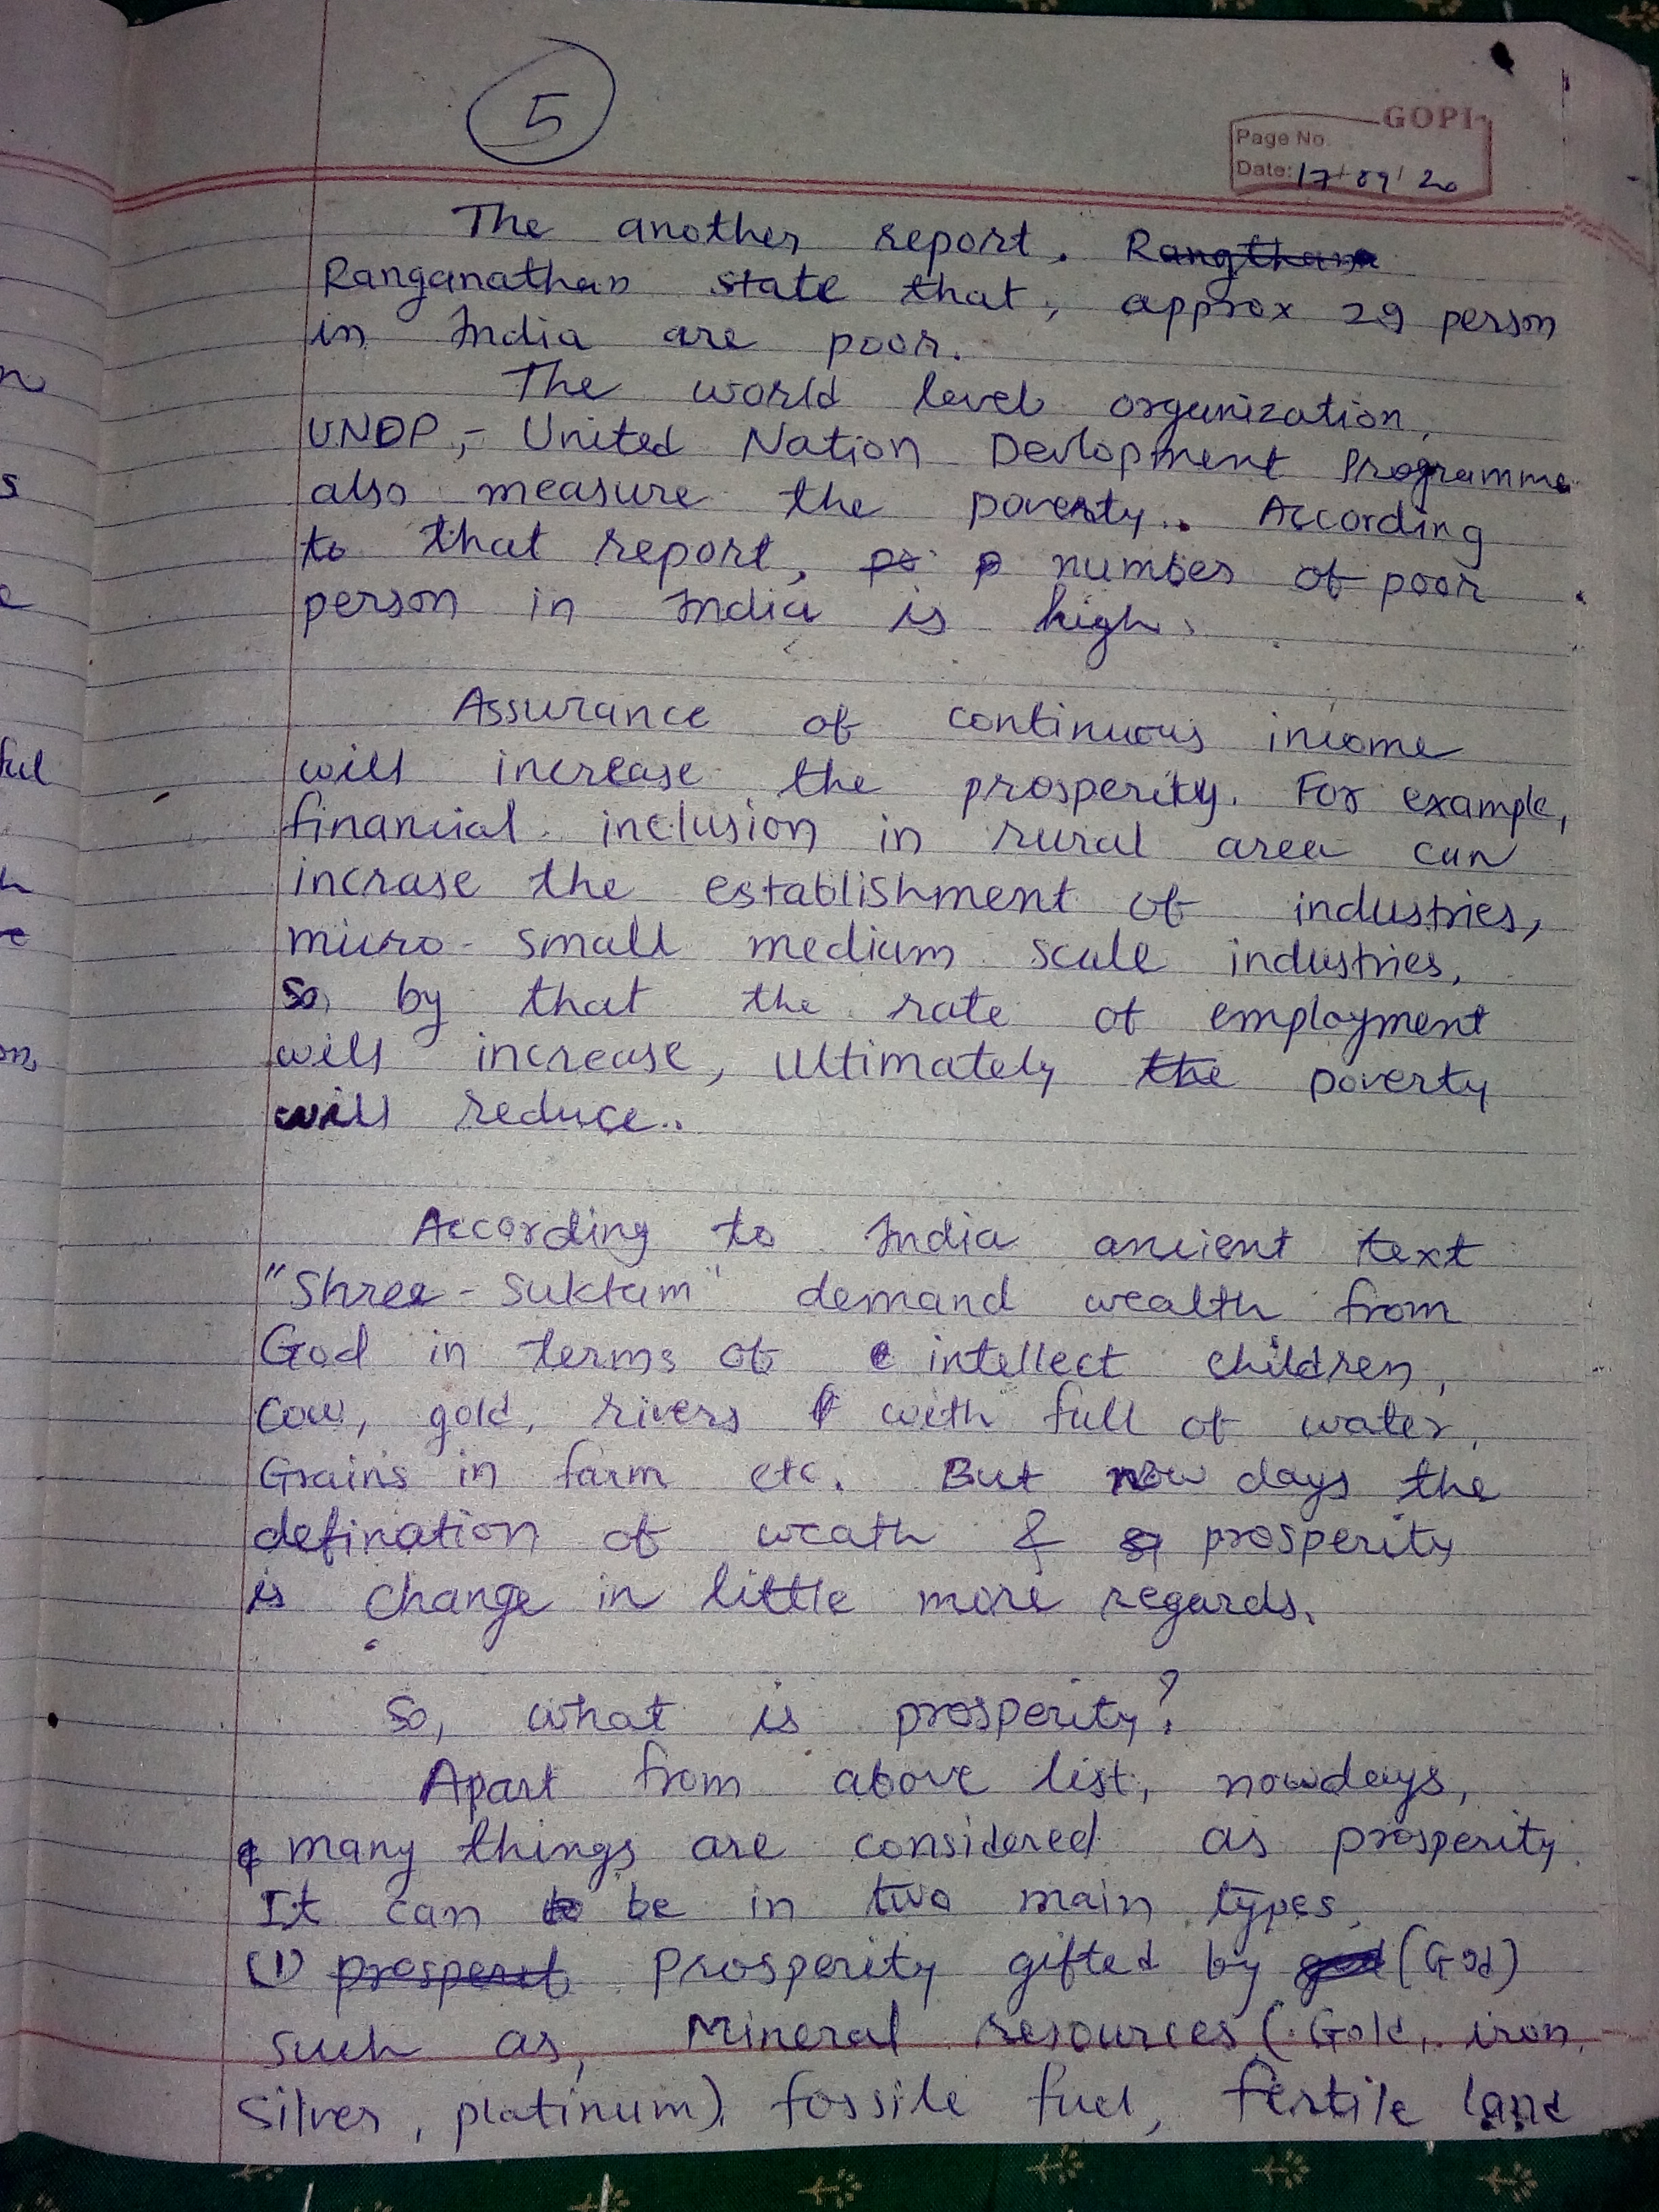 5
GOPI
Page No.
Date: 17/09/20
The another report. 
Ranganathan state that, approx 29 person
in India are poor.
The world level organization,
UNDP,- United Nation Devlopment Programme
also measure the poverty. According
to that report, number of poor
person in India is high.
Assurance of continuous income
will increase the prosperity. For example,
financial inclusion in rural area can
incrase the establishment of industries,
micro small medium scale industries,
so, by that the rate of employment
will increase, ultimately the poverty
will reduce..
According to India ancient text
"Shree-Suktam" demand wealth from
God in terms of intellect children,
cow, gold, rivers with full of water,
Grains in farm etc. But now days the
defination of weath & prosperity
is change in little more regards.
So, what is prosperity?
Apart from above list, nowdays,
many things are considered as prosperity.
It can be in two main types.
(1) Prosperity gifted by (God)
such as, Mineral resources (Gold, iron,
Silver, platinum) fossile fuel, fertile land